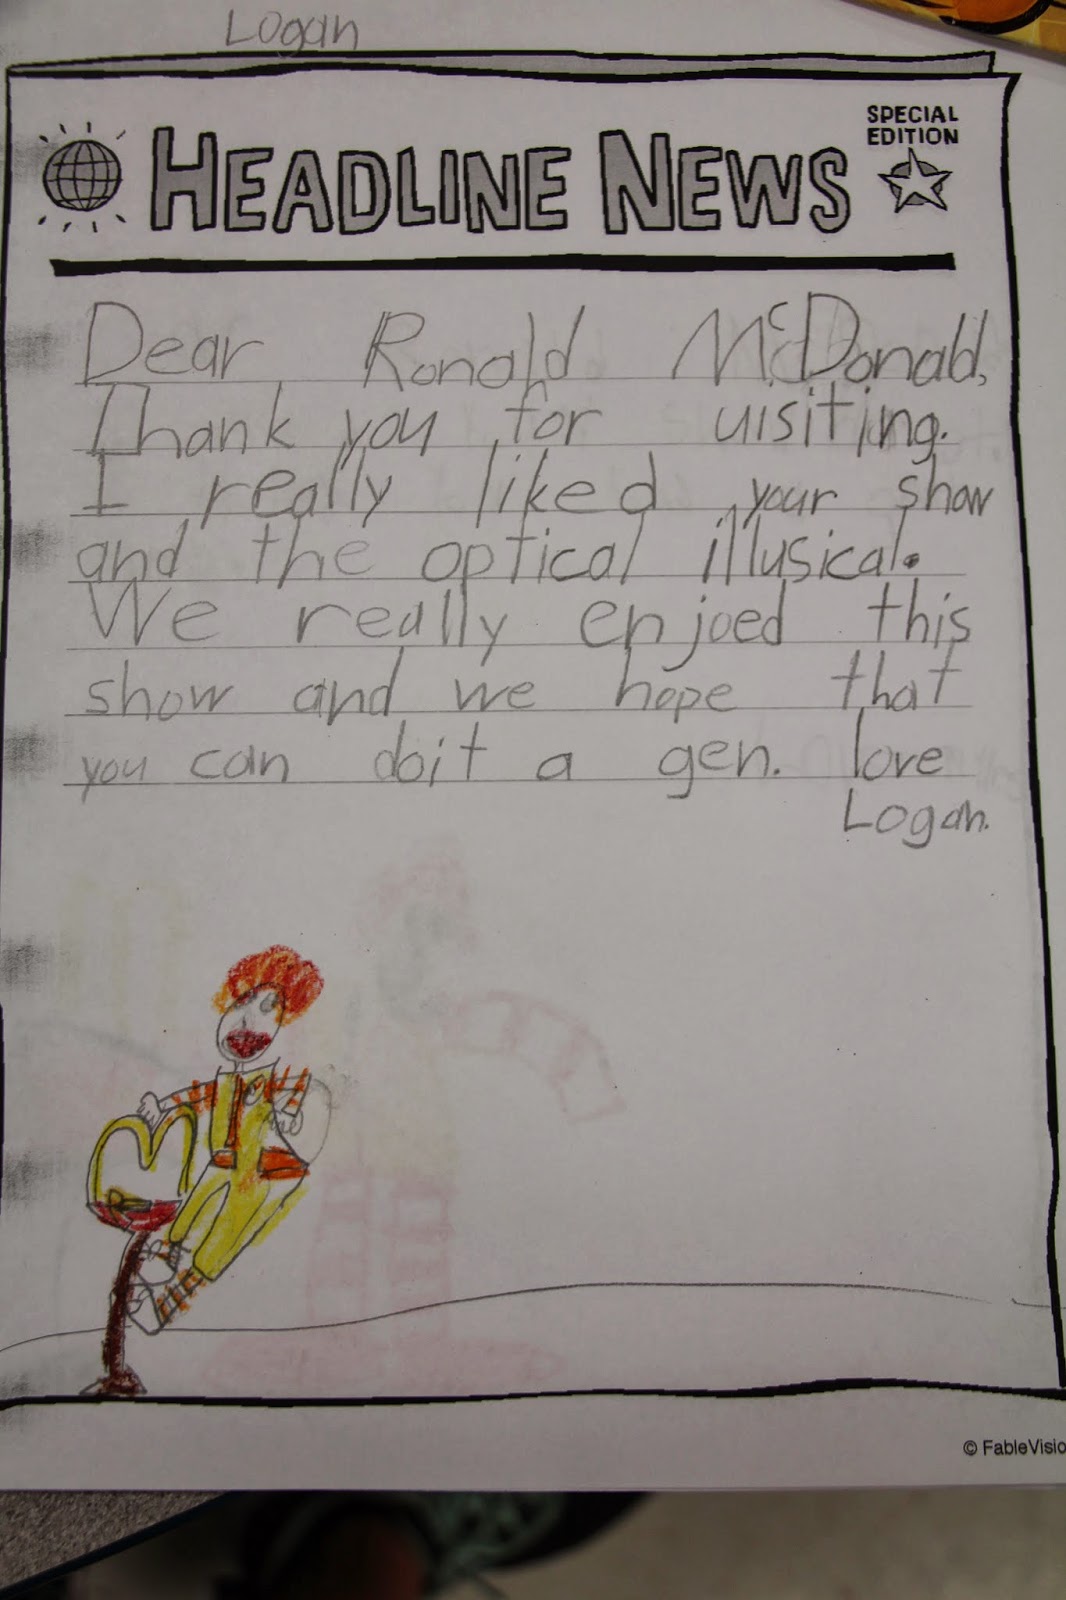 Logan
HEADLINE NEWS
SPECIAL
EDITION
Dear Ronald McDonald,
Thank you for uisiting.
I really liked your show
and the optical illusical.
We really enjoed this
show and we hope that
you can doit a gen. love
Logan.
© FableVisio